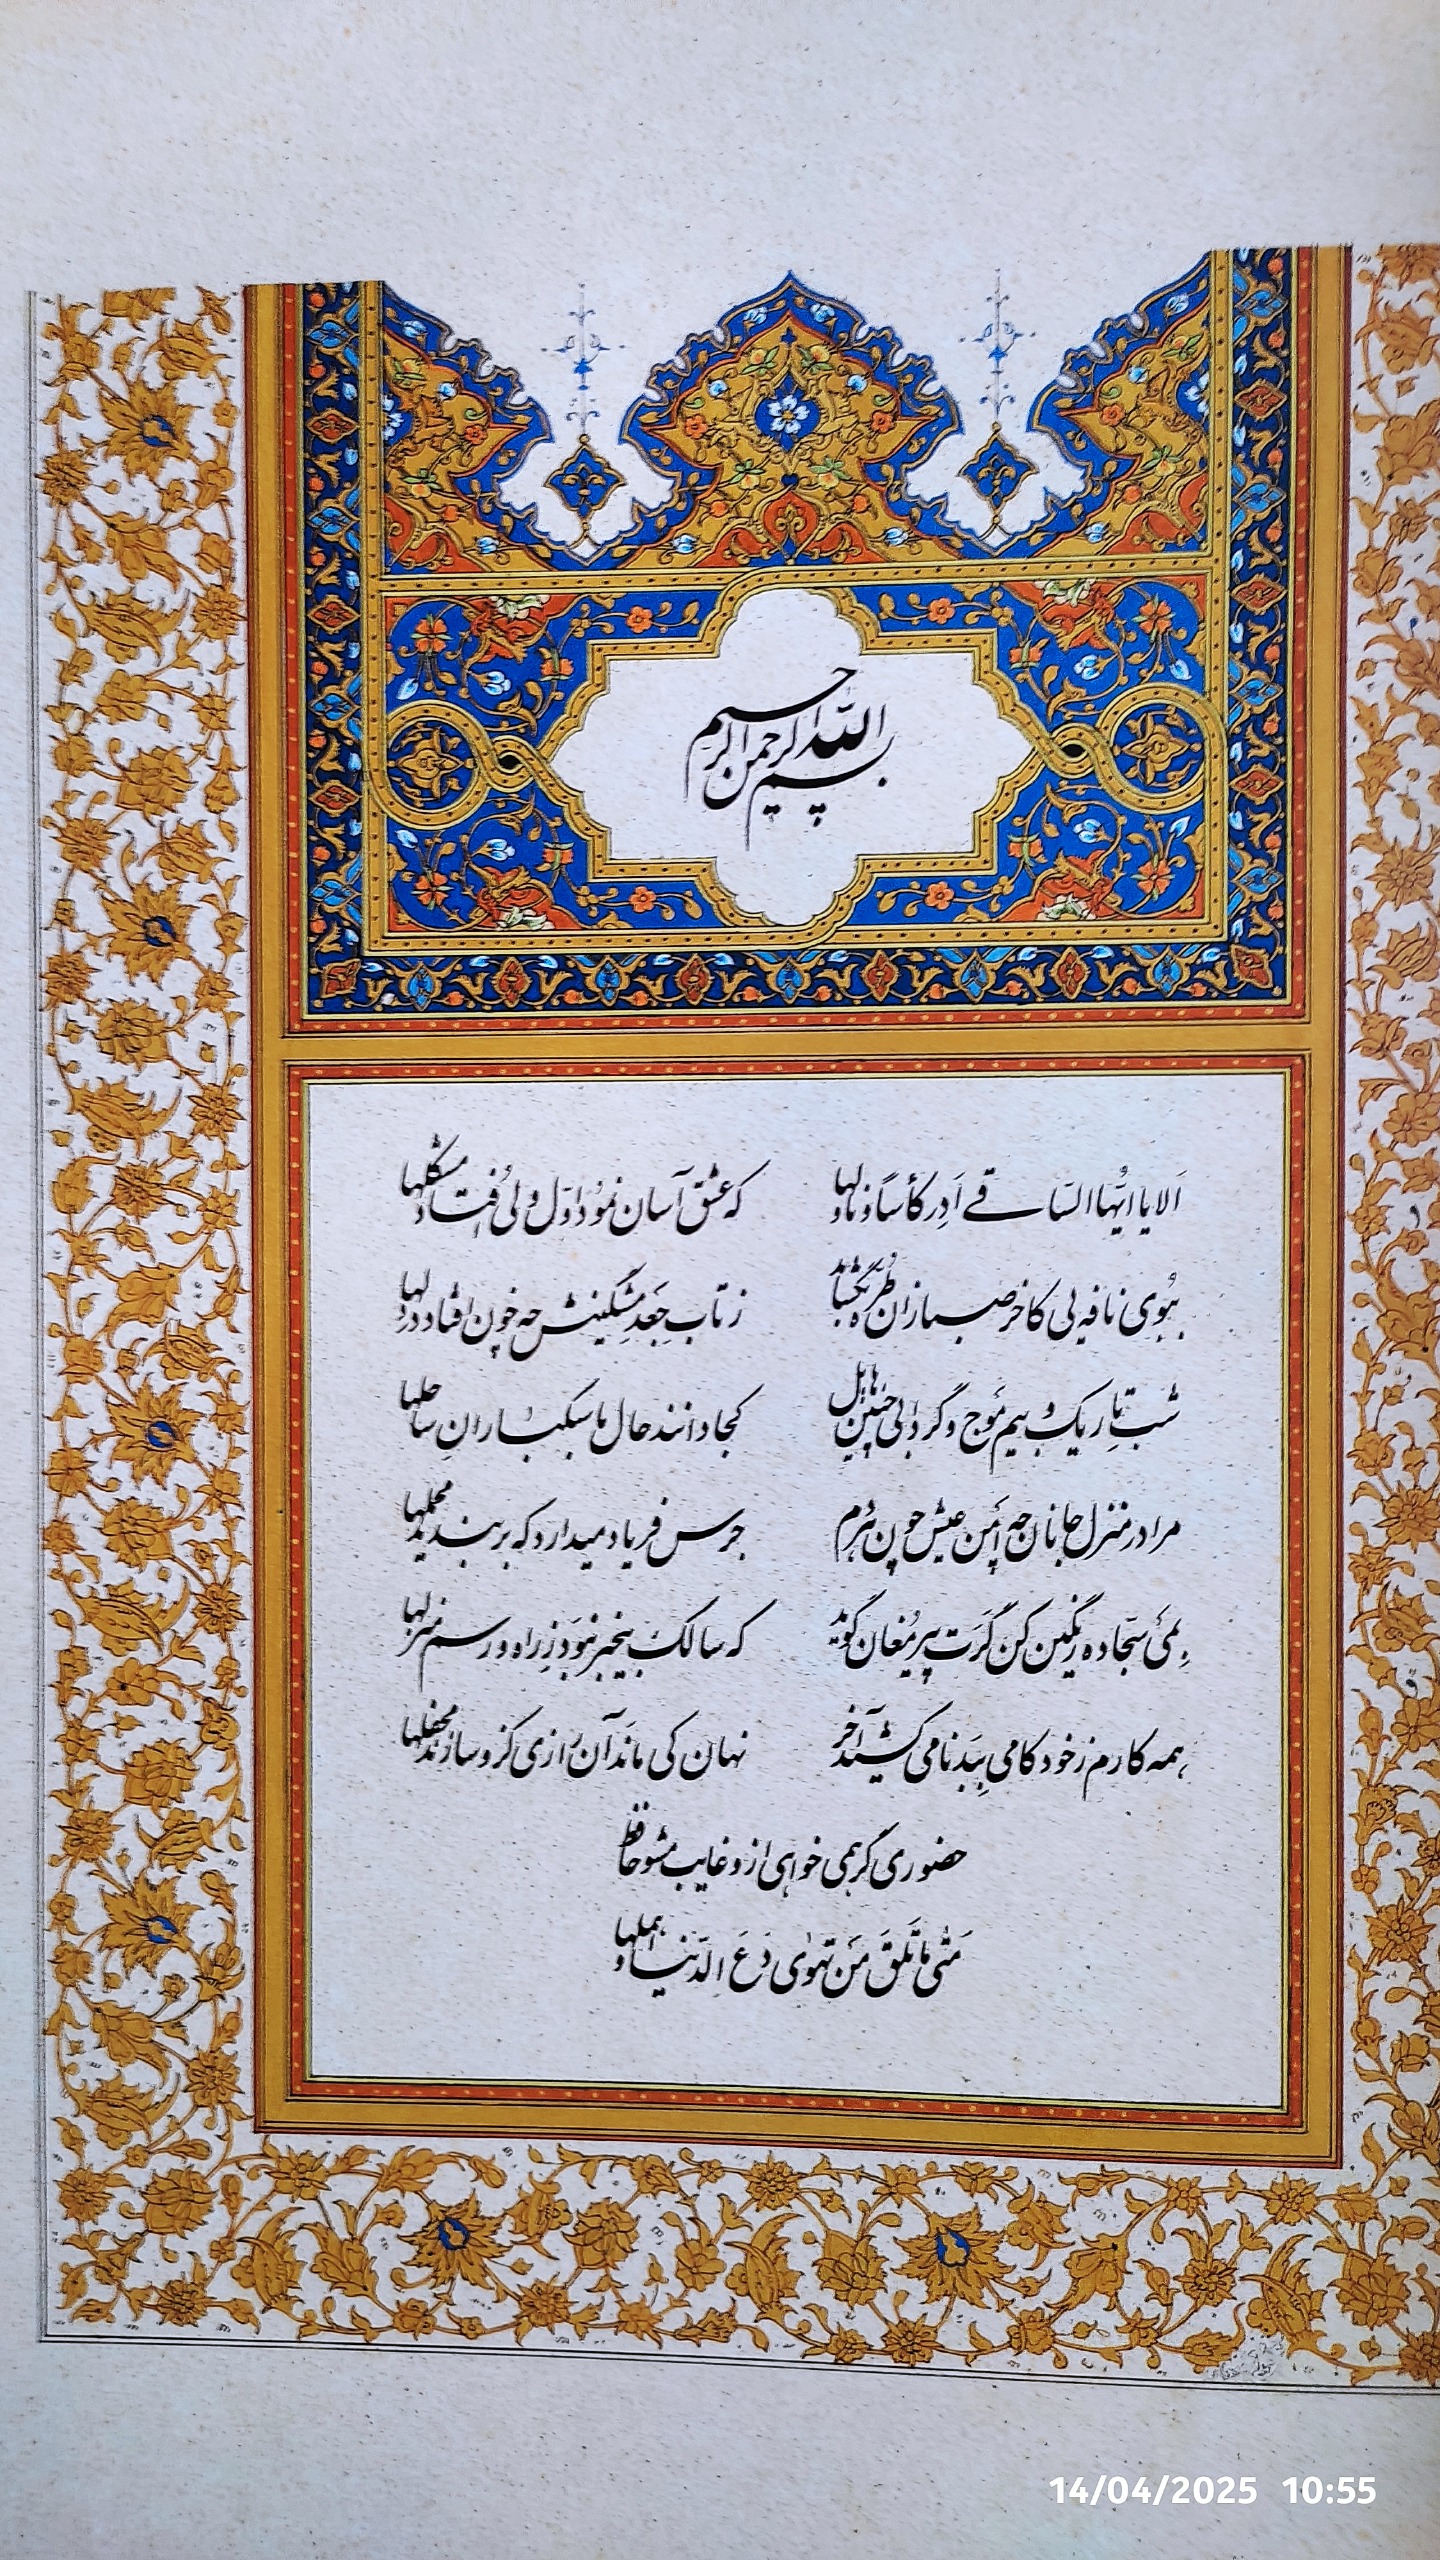 بسم الله الرحمن الرحیم
اَلا یا ایُّها السّاقی اَدِر کأساً و ناولها که عشق آسان نمود اوّل ولی افتاد مشکلها
ببُوی نافه‌یی کاخر صبا زان طُرّه بگشاید ز تابِ جَعدِ مشگینش چه خون افتاد در دلها
شبِ تاریک و بیم مَوج و گردابی چنین هایل کجا دانند حال ما سبکبارانِ ساحلها
مرا در منزل جانان چه اَمن عیش چون هردم جرس فریاد میدارد که بربندید محملها
بمی سجّاده رنگین کن گَرَت پیر مُغان گوید که سالک بیخبر نبوَد ز راه و رسم منزلها
همه کارم ز خود کامی ببَدنامی کشید آخر نهان کی ماند آن رازی کزو سازند محفلها
حضوری گر همی خواهی ازو غایب مشو حافظ
مَتی ما تَلقَ مَن تهوٰی دَعِ الدّنیا و اهملها
14/04/2025 10:55